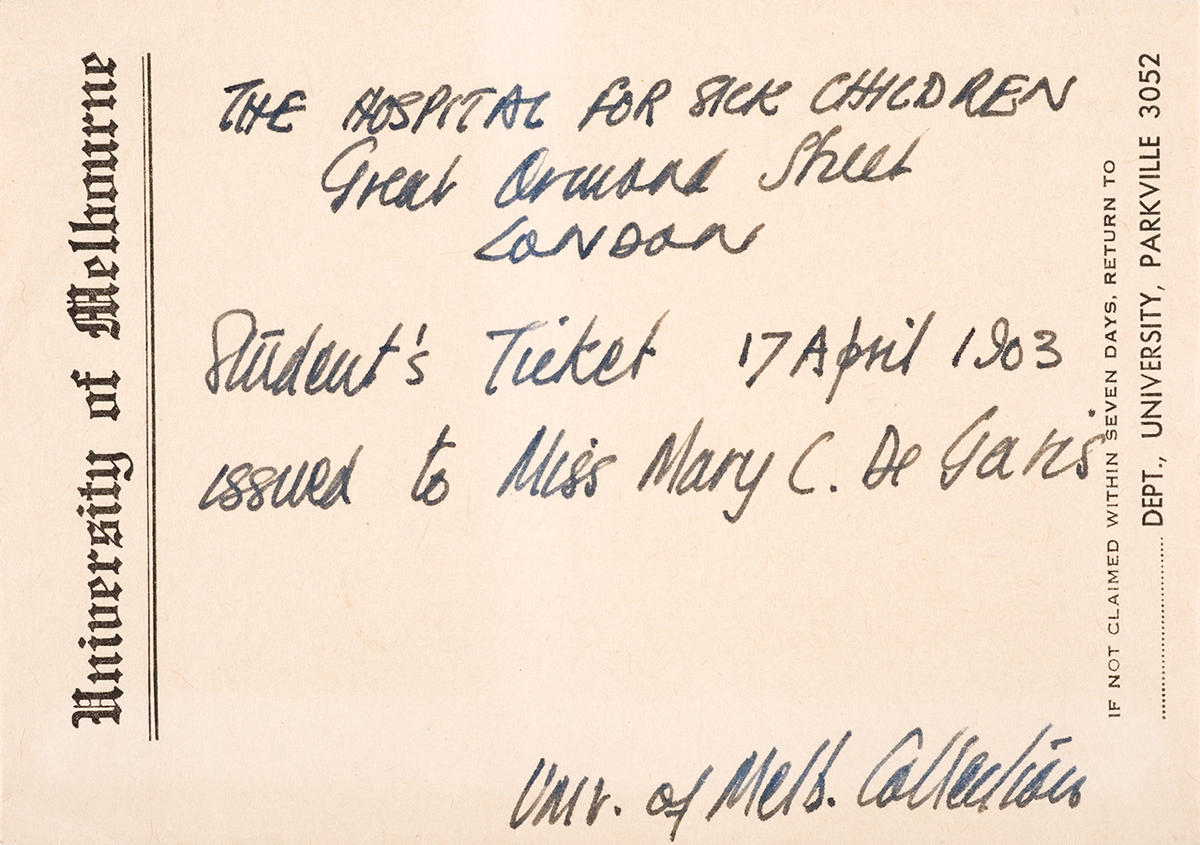 University of Melbourne
THE HOSPITAL FOR SICK CHILDREN
Great Ormond Street
LONDON
Student's Ticket 17 April 1903
issued to Miss Mary C. De Garis
Univ. of Melb. Collection
IF NOT CLAIMED WITHIN SEVEN DAYS, RETURN TO
DEPT., UNIVERSITY, PARKVILLE 3052